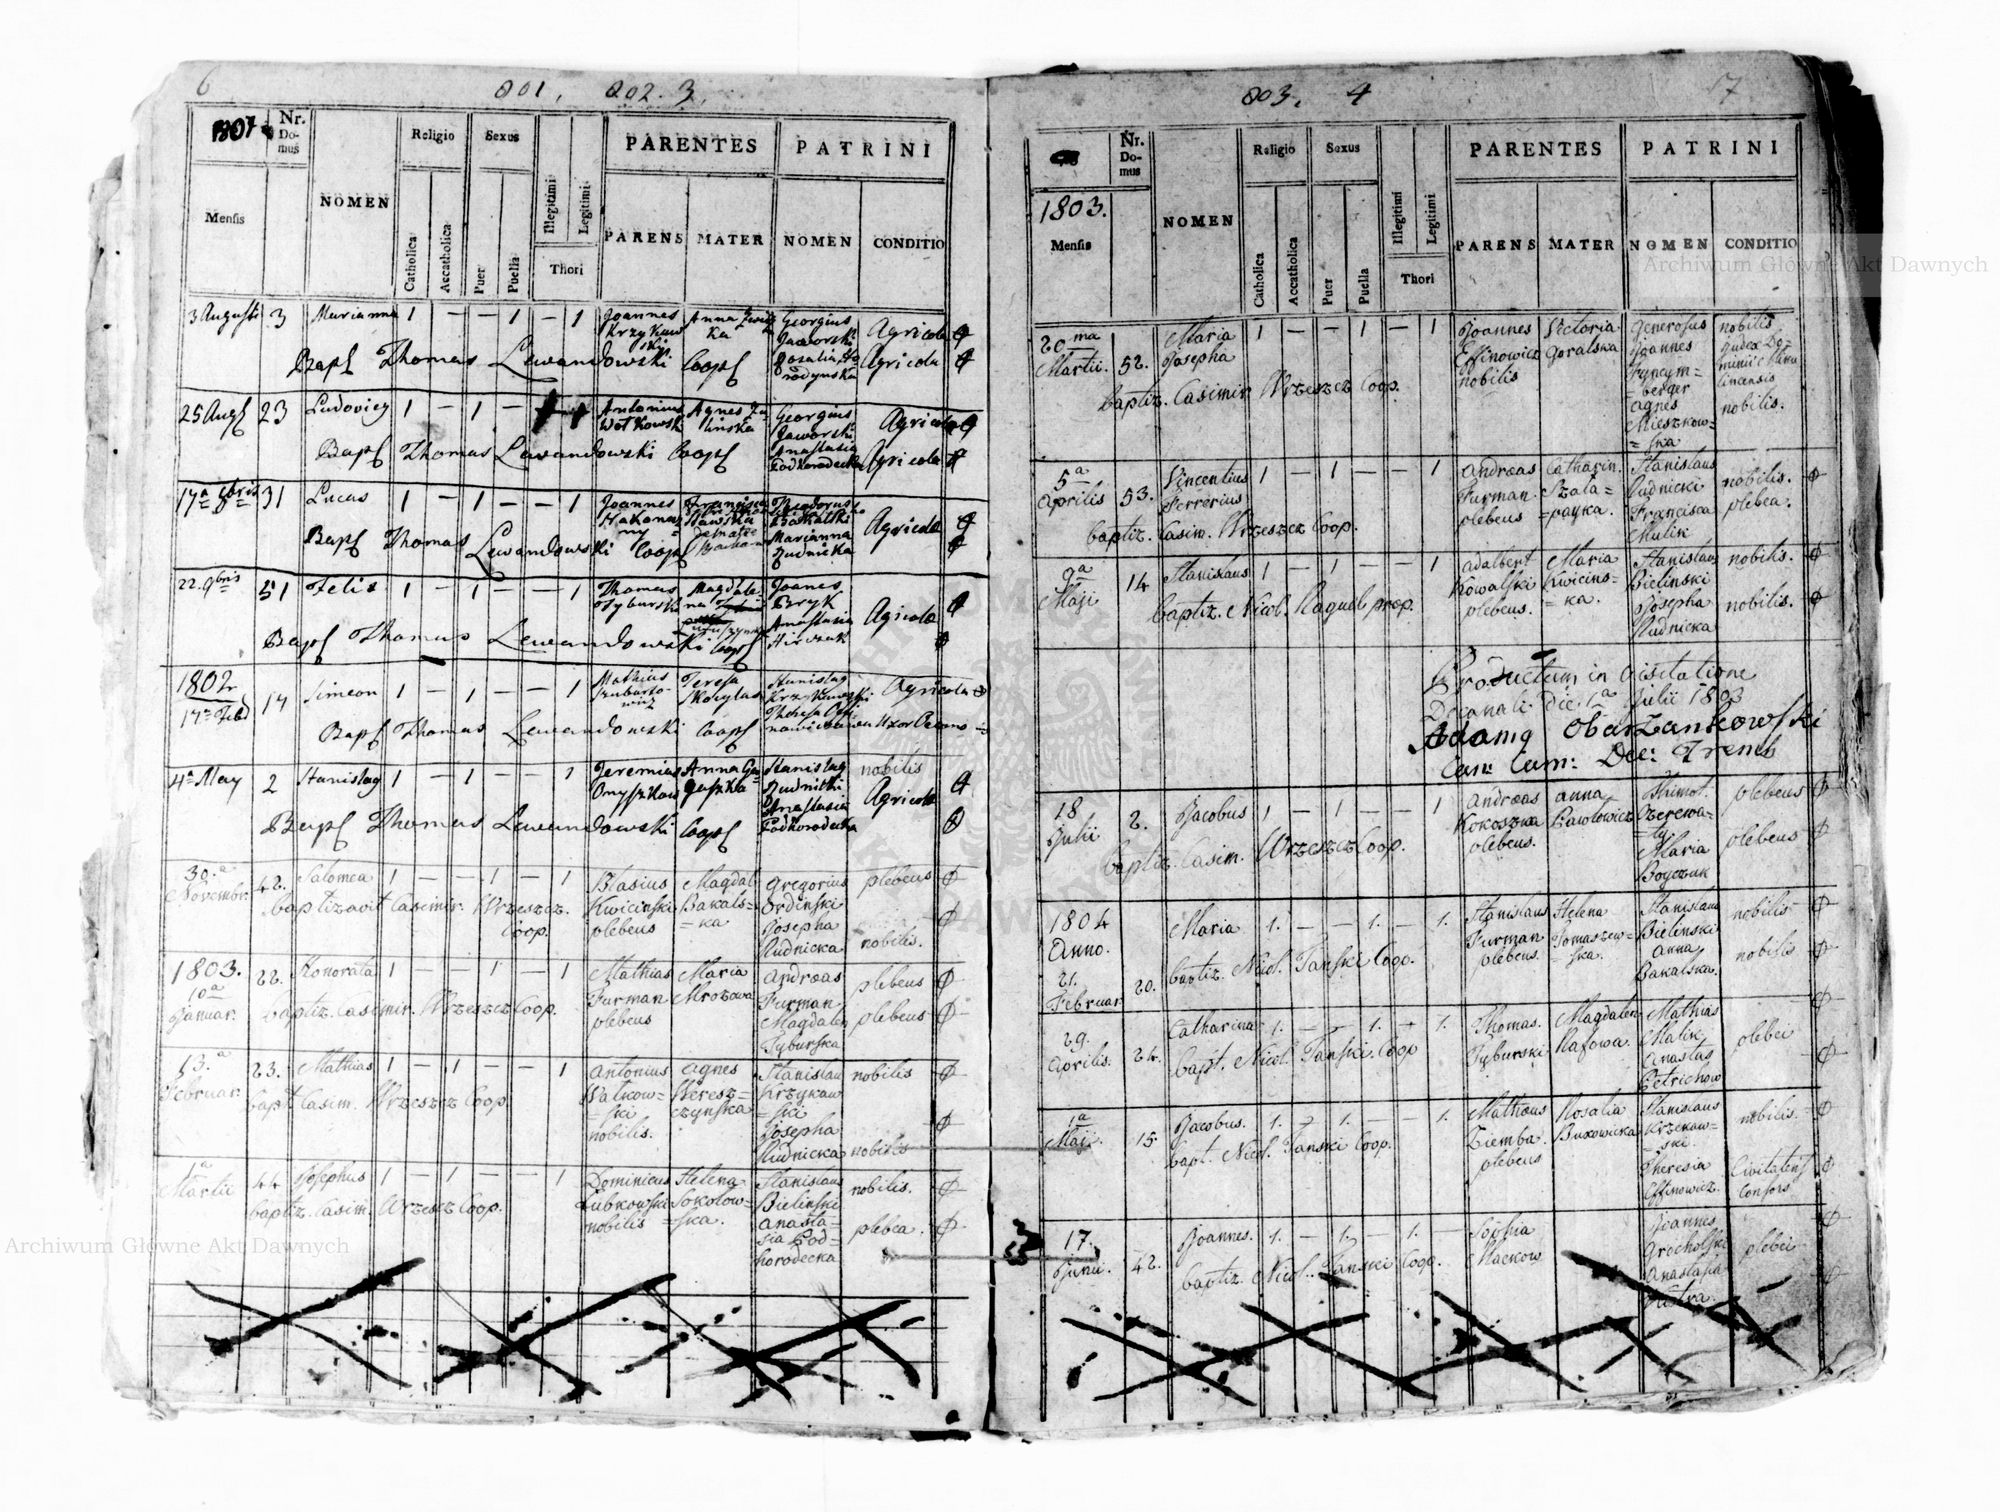 6
801. 802. 3.
1801
Nr. Domus
Religio
Sexus
PARENTES
PATRINI
Mensis
NOMEN
Catholica
Accatholica
Puer
Puella
Illegitimi
Legitimi
Thori
PARENS
MATER
NOMEN
CONDITIO
3 Augusti 3 Marianna 1 – – 1 – 1 Joannes Krzykowski Anna Georgius Jaworski Agricola
Rosalia Agricola
Bapt Thomas Lewandowski Coop
25 Aug 23 Ludovicq 1 – 1 – 1 Antonius Agnes Georgius Jaworski Agricola
Anastasia Podhorodecka Agricola
Bapt Thomas Lewandowski Coop
17a 8bris 31 Lucas 1 – 1 – – 1 Joannes Francisca Theodorus Bakalski Agricola
Marianna Rudnicka
Bapt Thomas Lewandowski Coop
22. 9bris 51 Felix 1 – 1 – – 1 Thomas Tyburski Magdalena Joanes Bryk Agricola
Anastasia
Bapt Thomas Lewandowski Coop
1802
17a Feb 14 Simeon 1 – 1 – – 1 Mathius Teresa Stanislaq Agricola
Bapt Thomas Lewandowski Coop
4a May 2 Stanislaq 1 – 1 – – 1 Jeremias Anna Stanislaq Rudnicki nobilis
Anastasia Podhorodecka Agricola
Bapt Thomas Lewandowski Coop
30.a Novembr. 42. Salomea 1 – – 1 – 1 Blasius Kwicinski plebeus Magdal Bakalska Gregorius Ordinski plebeus
Josepha Rudnicka nobilis.
baptizavit Casimir. Wrzeszcz. Coop.
1803.
10a Januar. 22. Honorata 1 – – 1 – 1 Mathias Furman plebeus Maria Mrozowa Andreas Furman plebeus
Magdalen Tyburska plebeus
baptiz. Casimir. Wrzeszcz Coop.
13.a Februar. 23. Mathias 1 – 1 – – 1 Antonius Watkowski nobilis. Agnes Wereszczynska Stanislau Krzykawski nobilis
Josepha Rudnicka nobilis
bapt Casim. Wrzeszcz Coop.
1a Martii 44 Josephus 1 – 1 – – 1 Dominicus Lubkowski nobilis Helena Sokolowska. Stanislaus Bielinski nobilis.
Anastasia Podhorodecka plebea.
baptiz. Casim. Wrzeszcz Coop.
803. 4
7
Nr. Domus
Religio
Sexus
PARENTES
PATRINI
1803.
Mensis
NOMEN
Catholica
Accatholica
Puer
Puella
Illegitimi
Legitimi
Thori
PARENS
MATER
NOMEN
CONDITIO
20ma Martii. 52. Maria Josepha 1 – – 1 – 1 Joannes Effinowicz nobilis Victoria Goralska Generosus Joannes nobilis
Agnes Mieszkowska nobilis.
baptiz. Casimir Wrzeszcz Coop.
5a Aprilis 53. Vincentius Ferrerius 1 – 1 – – 1 Andreas Furman. plebeus Catharin. Stanislaus Rudnicki nobilis.
Francisca Mulik plebea.
baptiz. Casim. Wrzeszcz Coop.
9a Maji 14 Stanislaus 1 – 1 – – 1 Adalbert Kowalski plebeus. Maria Kwicinska. Stanislaus Bielinski nobilis.
Josepha Rudnicka nobilis.
baptiz. Nicol. Raguel prep.
Productum in visitatione
Decanali. Die. 1a Julii 1803
Adamq Obarzankowski
Can: Cam: Dec: Tremb
18 Julii 2. Jacobus 1 – 1 – – 1 Andreas Kokoszka plebeus. Anna Pawlowicz Thimot. plebeus
Maria Boyczuk plebeus
baptiz. Casim. Wrzeszcz Coop.
1804
Anno.
21. Februar 20. Maria 1. – – 1. – 1. Stanislaus Furman plebeus. Helena Tomaszewska. Stanislaus Bielinski nobilis
Anna Bakalska. nobilis
baptiz. Nicol. Janski Coop.
29. Aprilis. 24. Catharina 1. – – 1. – 1. Thomas. Tyburski Magdalen Rafowa. Mathias Malik plebei
Anastas Petrichow
bapt. Nicol. Janski. Coop
1a Maji. 15. Jacobus. 1. – 1. – – 1. Matheus Ziemba. plebeus Rosalia Bukowicka Stanislaus Krzekowski. nobilis.
Theresia Effinowicz. Civitatens Consors
bapt. Nicol. Janski Coop.
17. Junii. 42. Joannes. 1. – 1. – 1. – Sophia Mackow Joannes Grocholski plebei
Anastasia
baptiz. Nicol. Janski Coop.
Archiwum Główne Akt Dawnych
Archiwum Główne Akt Dawnych